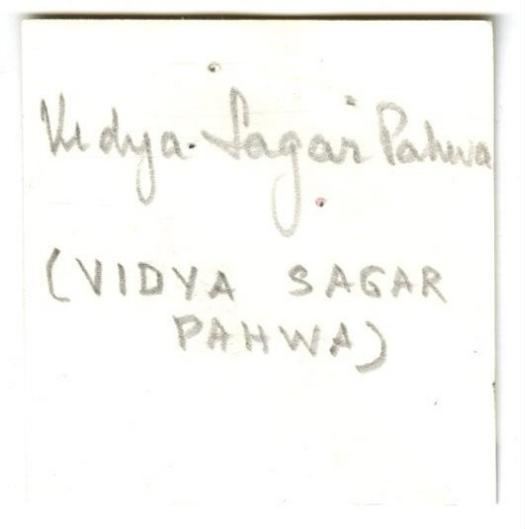 Vidya Sagar Pahwa
(VIDYA SAGAR
PAHWA)